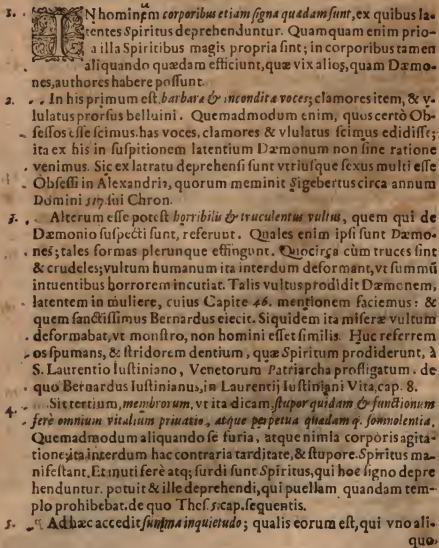 1. IN hominẽm corporibus etiam signa quædam sunt, ex quibus la-
tentes Spiritus deprehenduntur. Quamquam enim prio-
a illa Spiritibus magis propria sint; in corporibus tamen
aliquando quædam efficiunt, quæ vix alios, quam Dæmo-
nes, authores habere possunt.
2. In his primum est, barbaræ & inconditæ voces; clamores item, & v-
lulatus prorsus belluini. Quemadmodum enim, quos certò Ob-
sessos esse scimus. has voces, clamores & vlulatus scimus edidisse;
ita ex his in suspitionem latentium Dæmonum non sine ratione
venimus. Sic ex latratu deprehensi sunt vtriusque sexus multi esse
Obsessi in Alexandria, quorum meminit Sigebertus circa annum
Domini 517. sui Chron.
3. Alterum esse potest horribilis & truculentus vultus, quem qui de
Dæmonio suspecti sunt, referunt. Quales enim ipsi sunt Dæmo-
nes; tales formas plerunque effingunt. Quocirca cùm truces sint
& crudeles; vultum humanum ita interdum deformant, vt summũ
intuentibus horrorem incutiat. Talis vultus prodidit Dæmonem,
latentem in muliere, cuius Capite 46. mentionem faciemus: &
quem sanctissimus Bernardus eiecit. Siquidem ita miseræ vultum
deformabat, vt monstro, non homini esset similis. Huc referrem
os spumans, & stridorem dentium, quæ Spiritum prodiderunt, à
S. Laurentio Iustiniano, Venetorum Patriarcha profligatum. de
quo Bernardus Iustinianus, in Laurentij Iustiniani Vita, cap. 8.
4. Sit tertium, membrorum, vt ita dicam, stupor quidam & functionum
ferè omnium vitalium priuatio, atque perpetua quædam q. somnolentia.
Quemadmodum aliquando se furia, atque nimia corporis agita-
tione; ita interdum hac contraria tarditate, & stupore. Spiritus ma-
nifestant. Et muti ferè atq; surdi sunt Spiritus, qui hoc signo depre
henduntur. potuit & ille deprehendi, qui puellam quandam tem-
plo prohibebat. de quo Thes. 5. cap. sequentis.
5. Ad hæc accedit summa inquietudo; qualis eorum est, qui vno ali-
quo